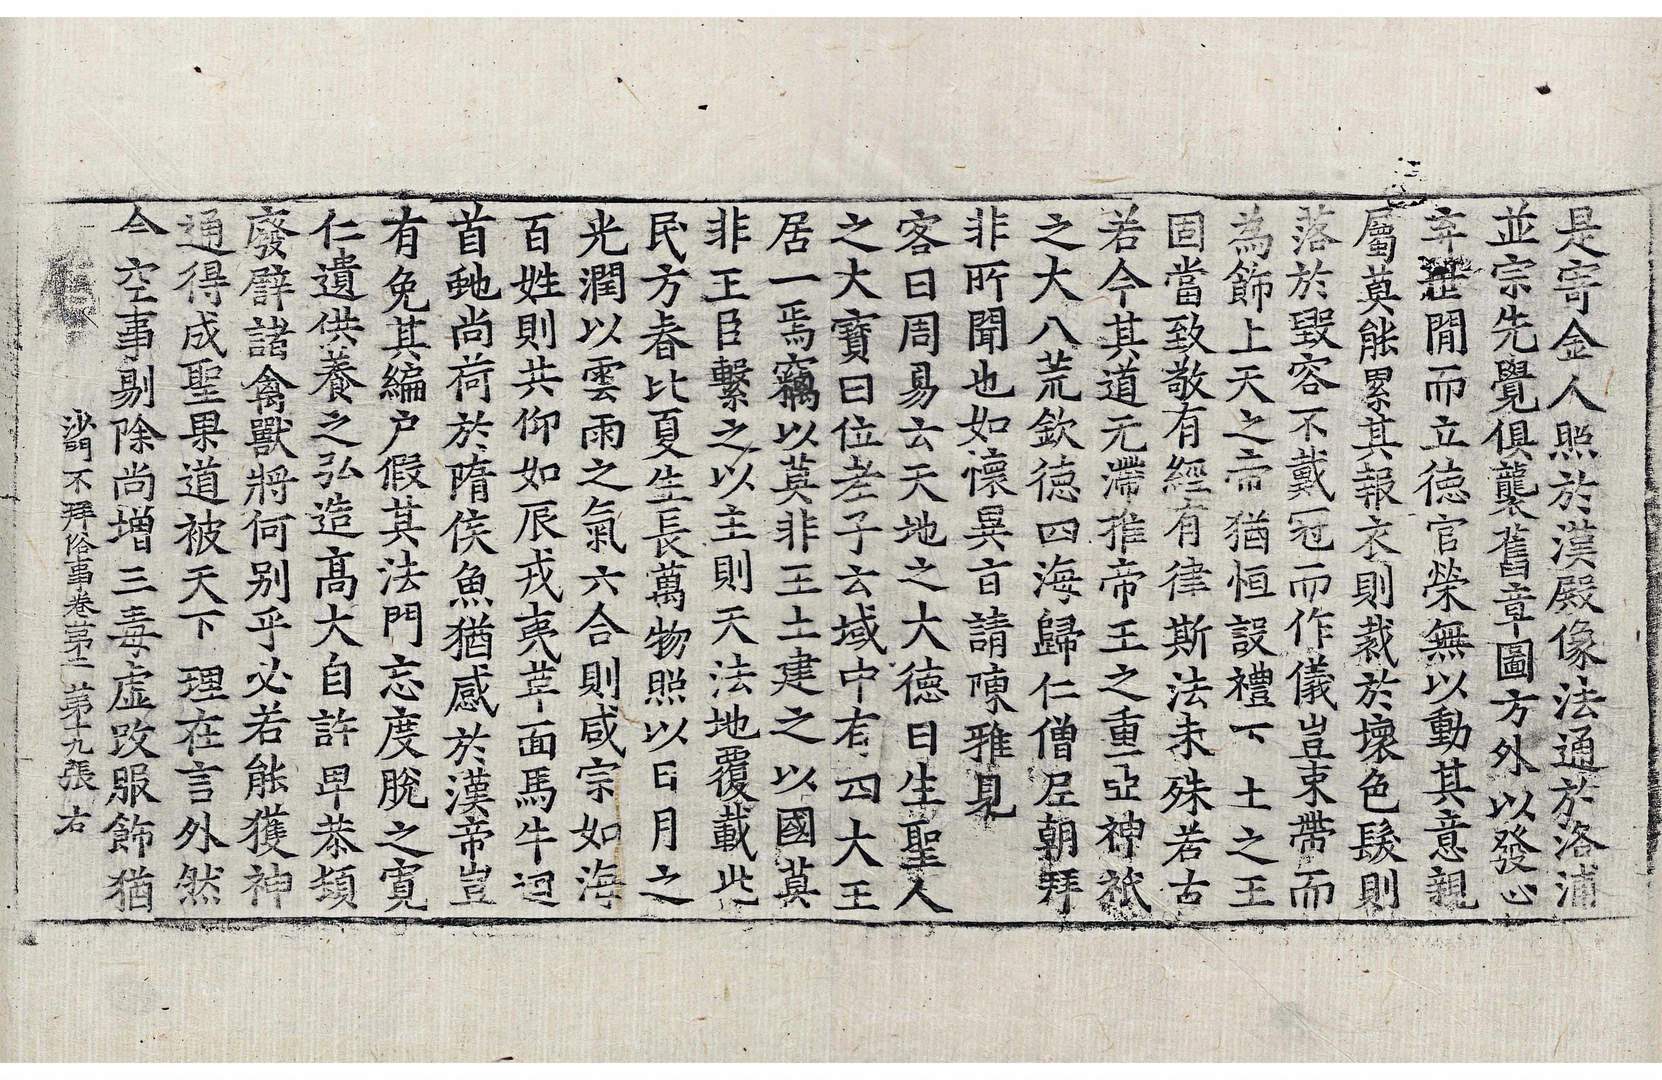 是寄金人照於漢殿像法通於洛浦
並宗先覺俱襲舊章圖方外以發心
弃世閒而立德官榮無以動其意親
屬莫能累其報衣則裁於壞色髮則
落於毀容不戴冠而作儀豈束帶而
為飾上天之帝猶恒設禮下土之王
固當致敬有經有律斯法未殊若古
若今其道无滯推帝王之重亞神祇
之大八荒欽德四海歸仁僧尼朝拜
非所聞也如懷異旨請陳雅見
客曰周易云天地之大德曰生聖人
之大寶曰位老子云域中有四大王
居一焉竊以莫非王土建之以國莫
非王臣繫之以主則天法地覆載此
民方春比夏生長萬物照以日月之
光潤以雲雨之氣六合則咸宗如海
百姓則共仰如辰戎夷革面馬牛迴
首虵尚荷於隋侯魚猶感於漢帝豈
有免其編户假其法門忘度脫之寬
仁遺供養之弘造高大自許卑恭頓
廢譬諸禽獸將何别乎必若能獲神
通得成聖果道被天下理在言外然
今空事剔除尚增三毒虛改服飾猶
沙門不拜俗事卷第二 第十九張 右